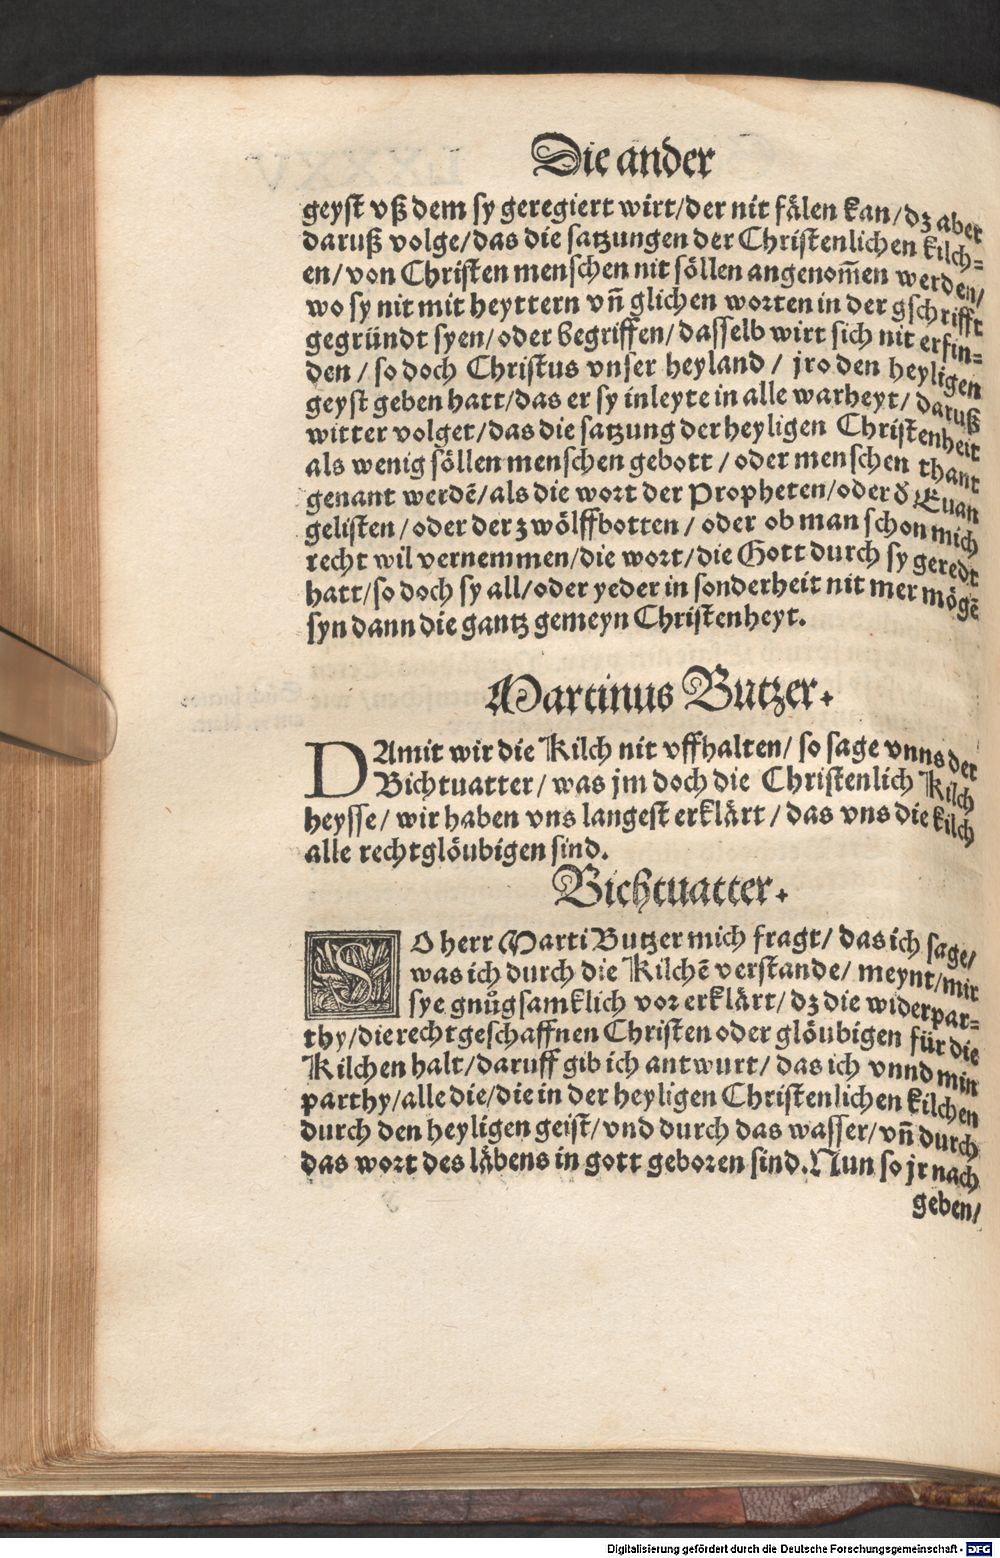 Die ander
geyst vß dem sy geregiert wirt/ der nit fälen kan/ dz aber
daruß volge/ das die satzungen der Christenlichen kilch⸗
en/ von Christen menschen nit söllen angenom̄en werden/
wo sy nit mit heyttern vn̄ glichen worten in der gschrifft
gegründt syen/ oder begriffen/ dasselb wirt sich nit erfin⸗
den / so doch Christus vnser heyland / jro den heyligen
geyst geben hatt/ das er sy inleyte in alle warheyt/ daruß
witter volget/ das die satzung der heyligen Christenheit
als wenig söllen menschen gebott / oder menschen thant
genant werdē/ als die wort der Propheten/ oder d̕ Euan
gelisten / oder der zwölffbotten / oder ob man schon mich
recht wil vernemmen/ die wort/ die Gott durch sy geredt
hatt/ so doch sy all/ oder yeder in sonderheit nit mer mögē
syn dann die gantz gemeyn Christenheyt.
Martinus Butzer.
DAmit wir die Kilch nit vffhalten/ so sage vnns der
Bichtuatter / was jm doch die Christenlich Kilch
heysse / wir haben vns langest erklärt / das vns die kilch
alle rechtglöubigen sind.
Bichtuatter.
SO herr Marti Butzer mich fragt/ das ich sage/
was ich durch die Kilchē verstande/ meynt/ mir
sye gnůgsamklich vor erklärt/ dz die widerpar⸗
thy/ die rechtgeschaffnen Christen oder glöubigen für die
Kilchen halt/ daruff gib ich antwurt/ das ich vnnd min
parthy/ alle die/ die in der heyligen Christenlichen kilchen
durch den heyligen geist/ vnd durch das wasser/ vn̄ durch
das wort des läbens in gott geboren sind. Nun so jr nach
geben/
Digitalisierung gefördert durch die Deutsche Forschungsgemeinschaft - DFG